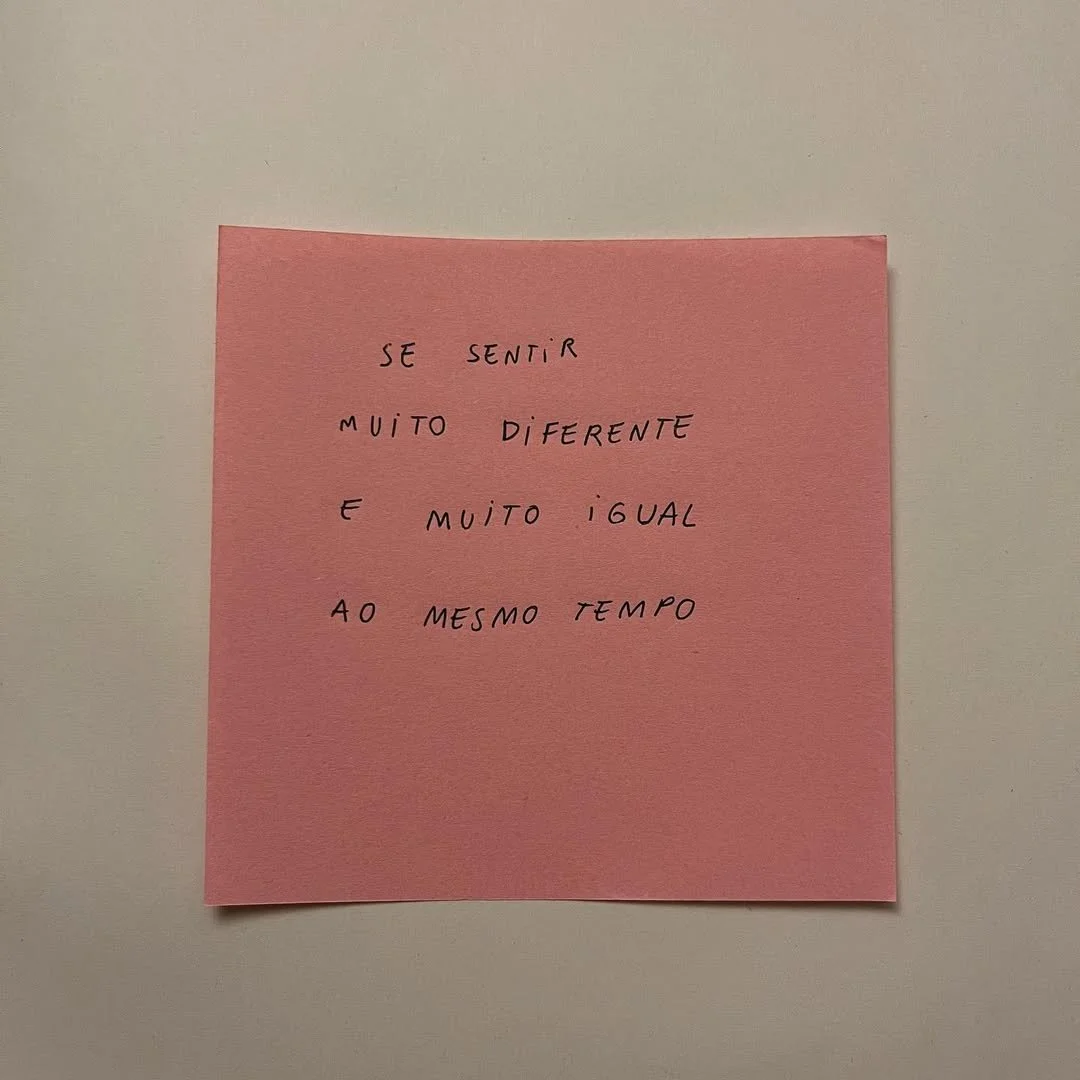 SE SENTIR
MUITO DIFERENTE
E MUITO IGUAL
AO MESMO TEMPO